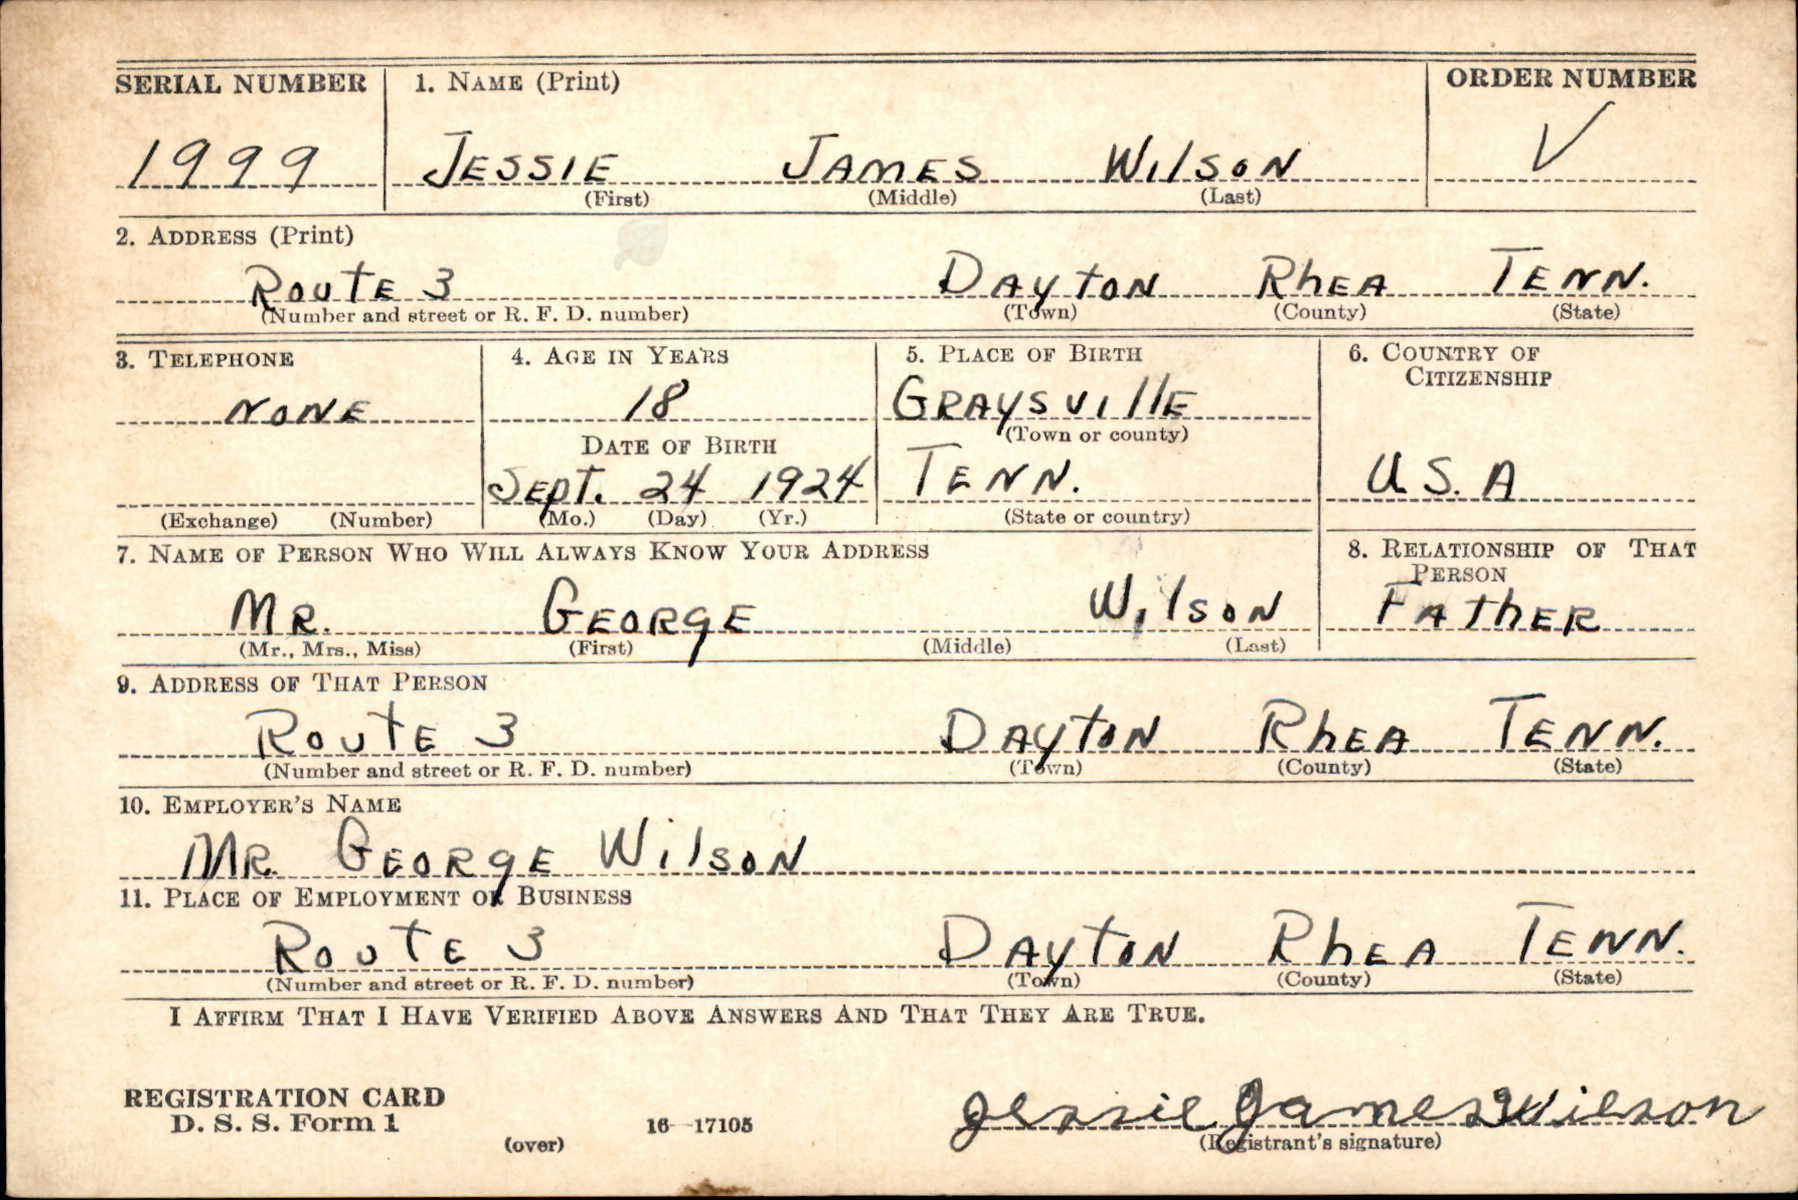 SERIAL NUMBER 1. NAME (Print) ORDER NUMBER
1999 JESSIE JAMES WILSON V
(First) (Middle) (Last)
2. ADDRESS (Print)
ROUTE 3 DAYTON RhEA TENN.
(Number and street or R. F. D. number) (Town) (County) (State)
3. TELEPHONE 4. AGE IN YEARS 5. PLACE OF BIRTH 6. COUNTRY OF CITIZENSHIP
NONE 18 GRAYSVILLE
DATE OF BIRTH (Town or county)
SEPT. 24 1924 TENN. U.S.A
(Exchange) (Number) (Mo.) (Day) (Yr.) (State or country)
7. NAME OF PERSON WHO WILL ALWAYS KNOW YOUR ADDRESS 8. RELATIONSHIP OF THAT PERSON
MR. GEORGE WILSON FATHER
(Mr., Mrs., Miss) (First) (Middle) (Last)
9. ADDRESS OF THAT PERSON
ROUTE 3 DAYTON RhEA TENN.
(Number and street or R. F. D. number) (Town) (County) (State)
10. EMPLOYER'S NAME
MR. GEORGE WILSON
11. PLACE OF EMPLOYMENT OR BUSINESS
ROUTE 3 DAYTON RhEA TENN.
(Number and street or R. F. D. number) (Town) (County) (State)
I AFFIRM THAT I HAVE VERIFIED ABOVE ANSWERS AND THAT THEY ARE TRUE.
REGISTRATION CARD
D. S. S. Form 1 16—17105 Jessie James Wilson
(over) (Registrant's signature)